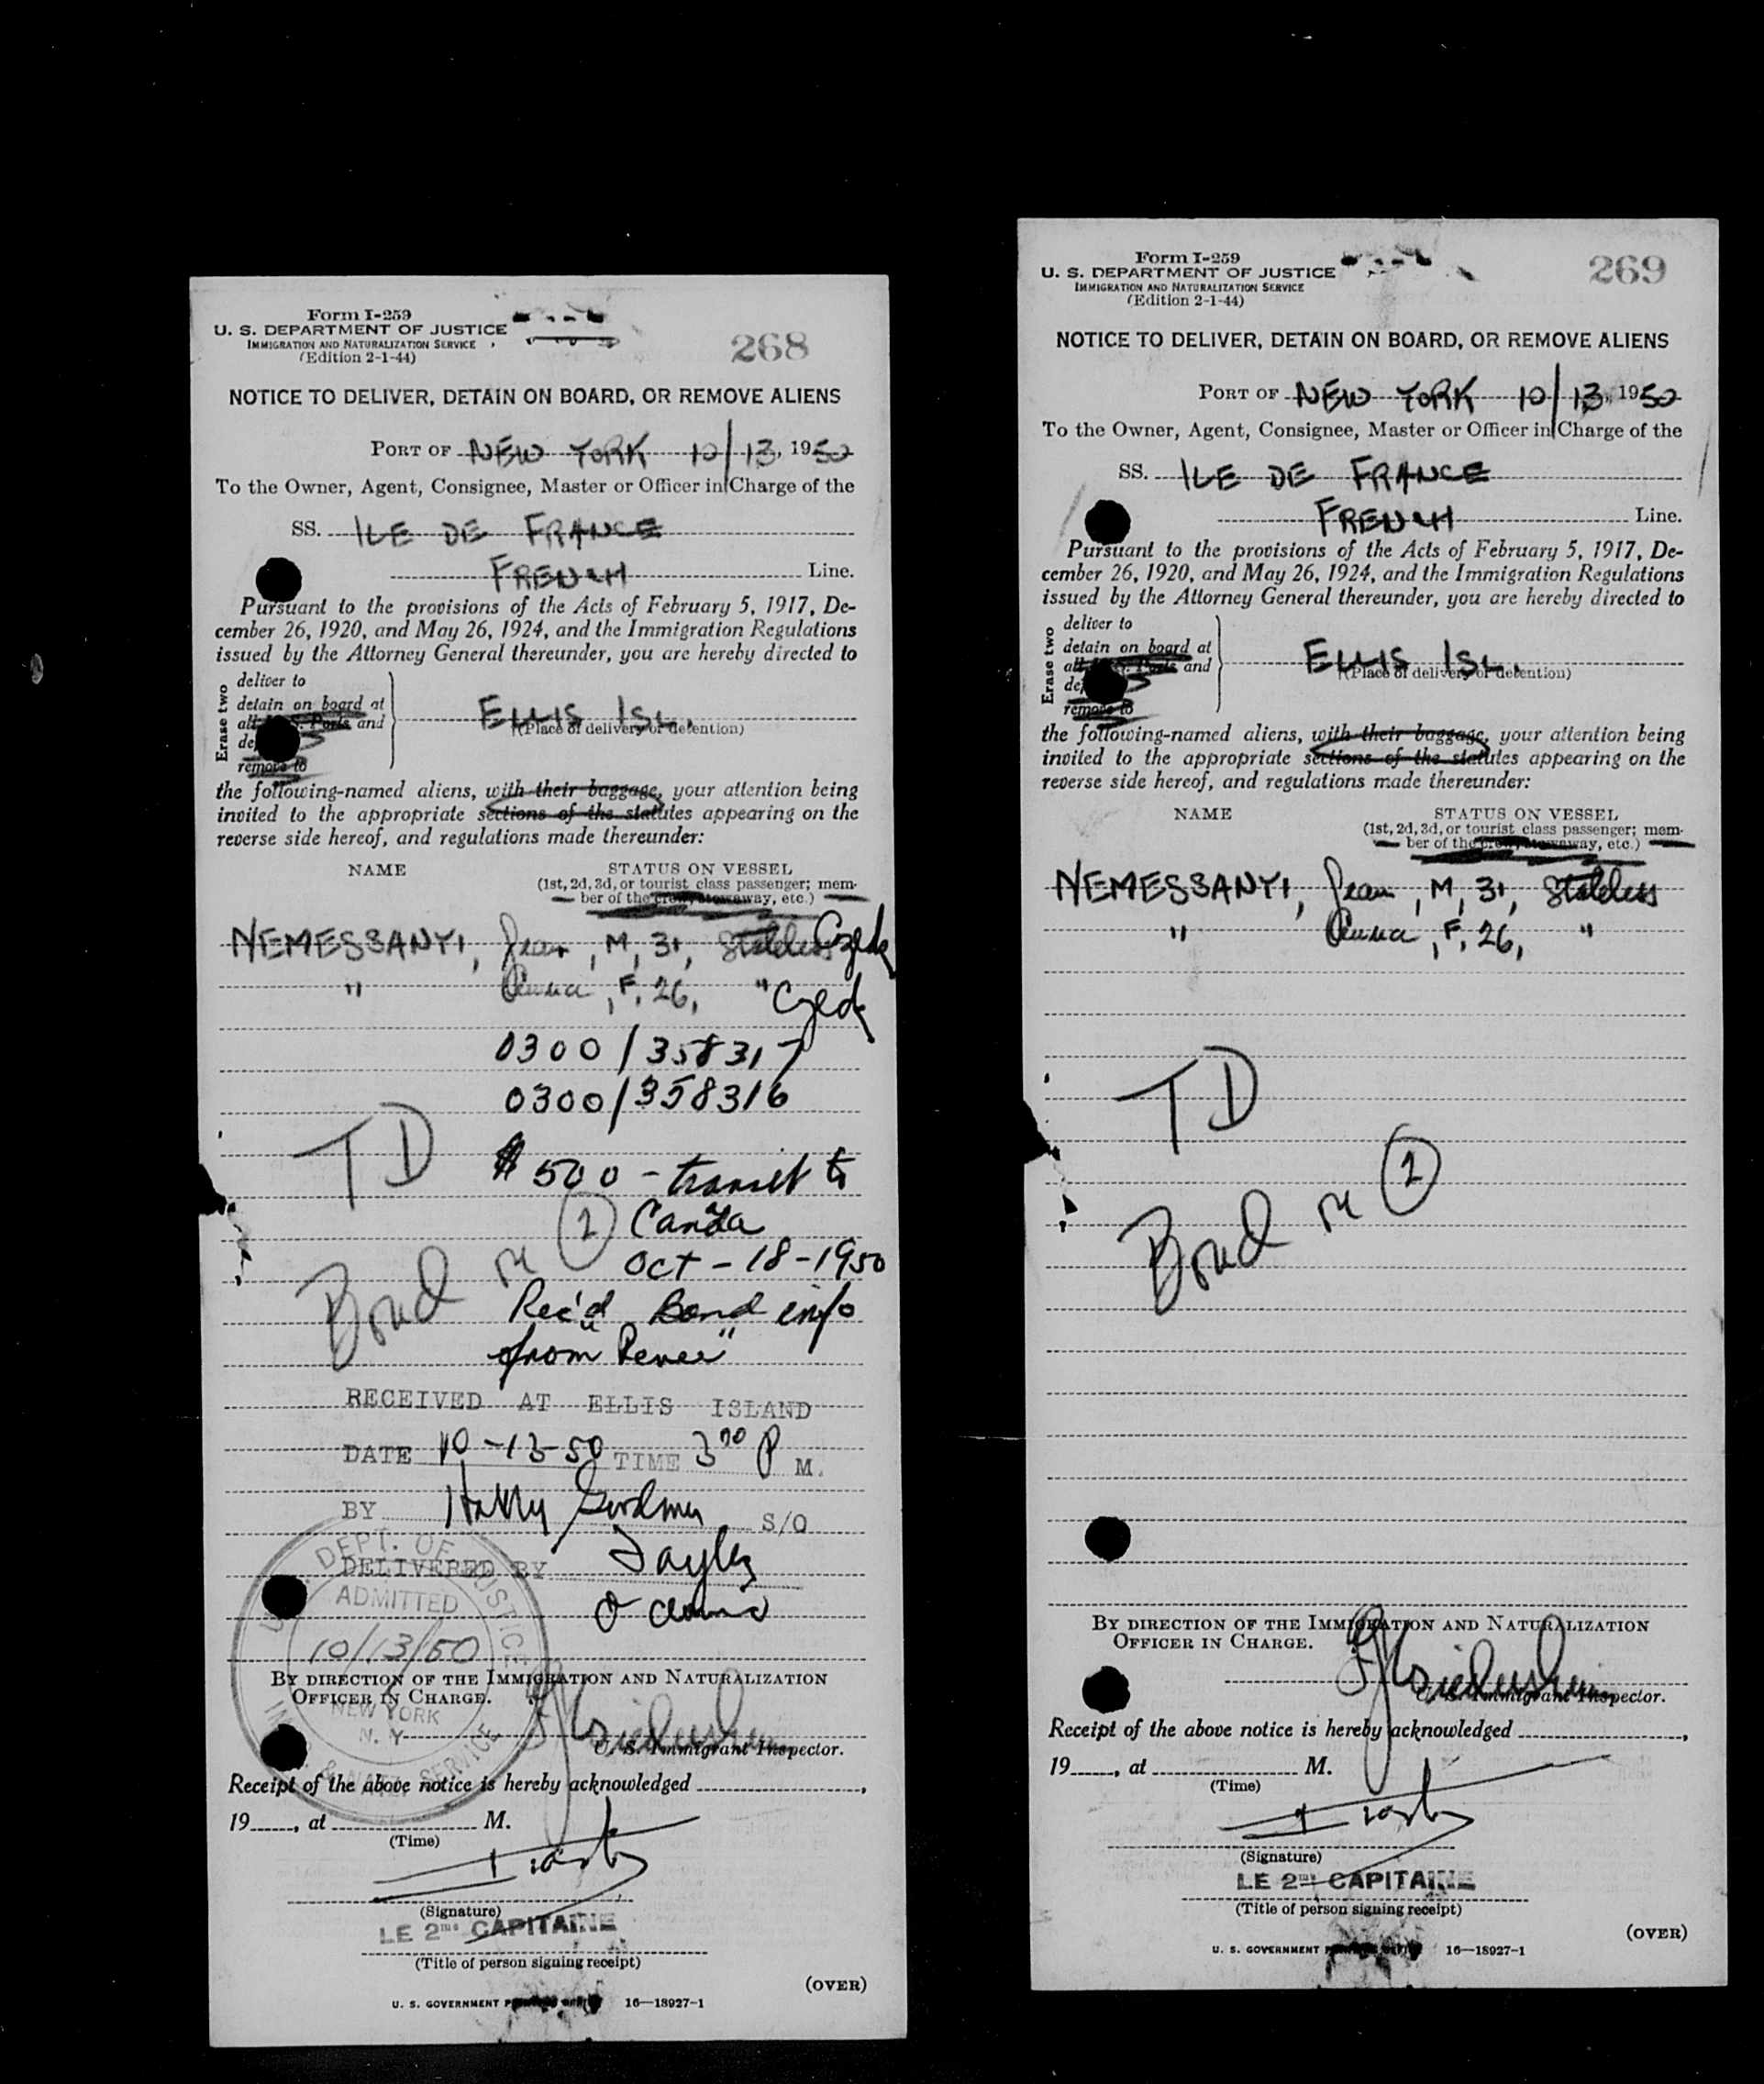 Form I-259
U. S. DEPARTMENT OF JUSTICE
IMMIGRATION AND NATURALIZATION SERVICE
(Edition 2-1-44)
268
NOTICE TO DELIVER, DETAIN ON BOARD, OR REMOVE ALIENS
PORT OF NEW YORK 10/13, 1950
To the Owner, Agent, Consignee, Master or Officer in Charge of the
SS. ILE DE FRANCE
FRENCH Line.
Pursuant to the provisions of the Acts of February 5, 1917, De-
cember 26, 1920, and May 26, 1924, and the Immigration Regulations
issued by the Attorney General thereunder, you are hereby directed to
Erase two
deliver to
detain on board at
all U. S. Ports and
remove to
ELLIS ISL.
(Place of delivery or detention)
the following-named aliens, with their baggage, your attention being
invited to the appropriate sections of the statutes appearing on the
reverse side hereof, and regulations made thereunder:
NAME STATUS ON VESSEL
(1st, 2d, 3d, or tourist class passenger; mem-
ber of the crew, stowaway, etc.)
NEMESSANYI, Jean, M, 31, Stateless Czech
" Anna, F, 26, " Czech
0300/358317
0300/358316
TD
$500 - transit to
Canada
Oct-18-1950
Bond on 2
Rec'd Bond info
from "Renee"
RECEIVED AT ELLIS ISLAND
DATE 10-13-50 TIME 3 P M.
BY Harry S/O
DELIVERED BY
DEPT. OF JUSTICE
ADMITTED
10/13/50
NEW YORK
N. Y.
& NATZ. SERVICE
BY DIRECTION OF THE IMMIGRATION AND NATURALIZATION
OFFICER IN CHARGE.
U. S. Immigrant Inspector.
Receipt of the above notice is hereby acknowledged ,
19 , at M.
(Time)
(Signature)
LE 2me CAPITAINE
(Title of person signing receipt)
(OVER)
U. S. GOVERNMENT PRINTING OFFICE 16—18927-1
Form I-259
U. S. DEPARTMENT OF JUSTICE
IMMIGRATION AND NATURALIZATION SERVICE
(Edition 2-1-44)
269
NOTICE TO DELIVER, DETAIN ON BOARD, OR REMOVE ALIENS
PORT OF NEW YORK 10/13, 1950
To the Owner, Agent, Consignee, Master or Officer in Charge of the
SS. ILE DE FRANCE
FRENCH Line.
Pursuant to the provisions of the Acts of February 5, 1917, De-
cember 26, 1920, and May 26, 1924, and the Immigration Regulations
issued by the Attorney General thereunder, you are hereby directed to
Erase two
deliver to
detain on board at
all U. S. Ports and
remove to
ELLIS ISL.
(Place of delivery or detention)
the following-named aliens, with their baggage, your attention being
invited to the appropriate sections of the statutes appearing on the
reverse side hereof, and regulations made thereunder:
NAME STATUS ON VESSEL
(1st, 2d, 3d, or tourist class passenger; mem-
ber of the crew, stowaway, etc.)
NEMESSANYI, Jean, M, 31, Stateless
" Anna, F, 26, "
TD
Bond on 2
BY DIRECTION OF THE IMMIGRATION AND NATURALIZATION
OFFICER IN CHARGE.
U. S. Immigrant Inspector.
Receipt of the above notice is hereby acknowledged ,
19 , at M.
(Time)
(Signature)
LE 2me CAPITAINE
(Title of person signing receipt)
(OVER)
U. S. GOVERNMENT PRINTING OFFICE 16—18927-1